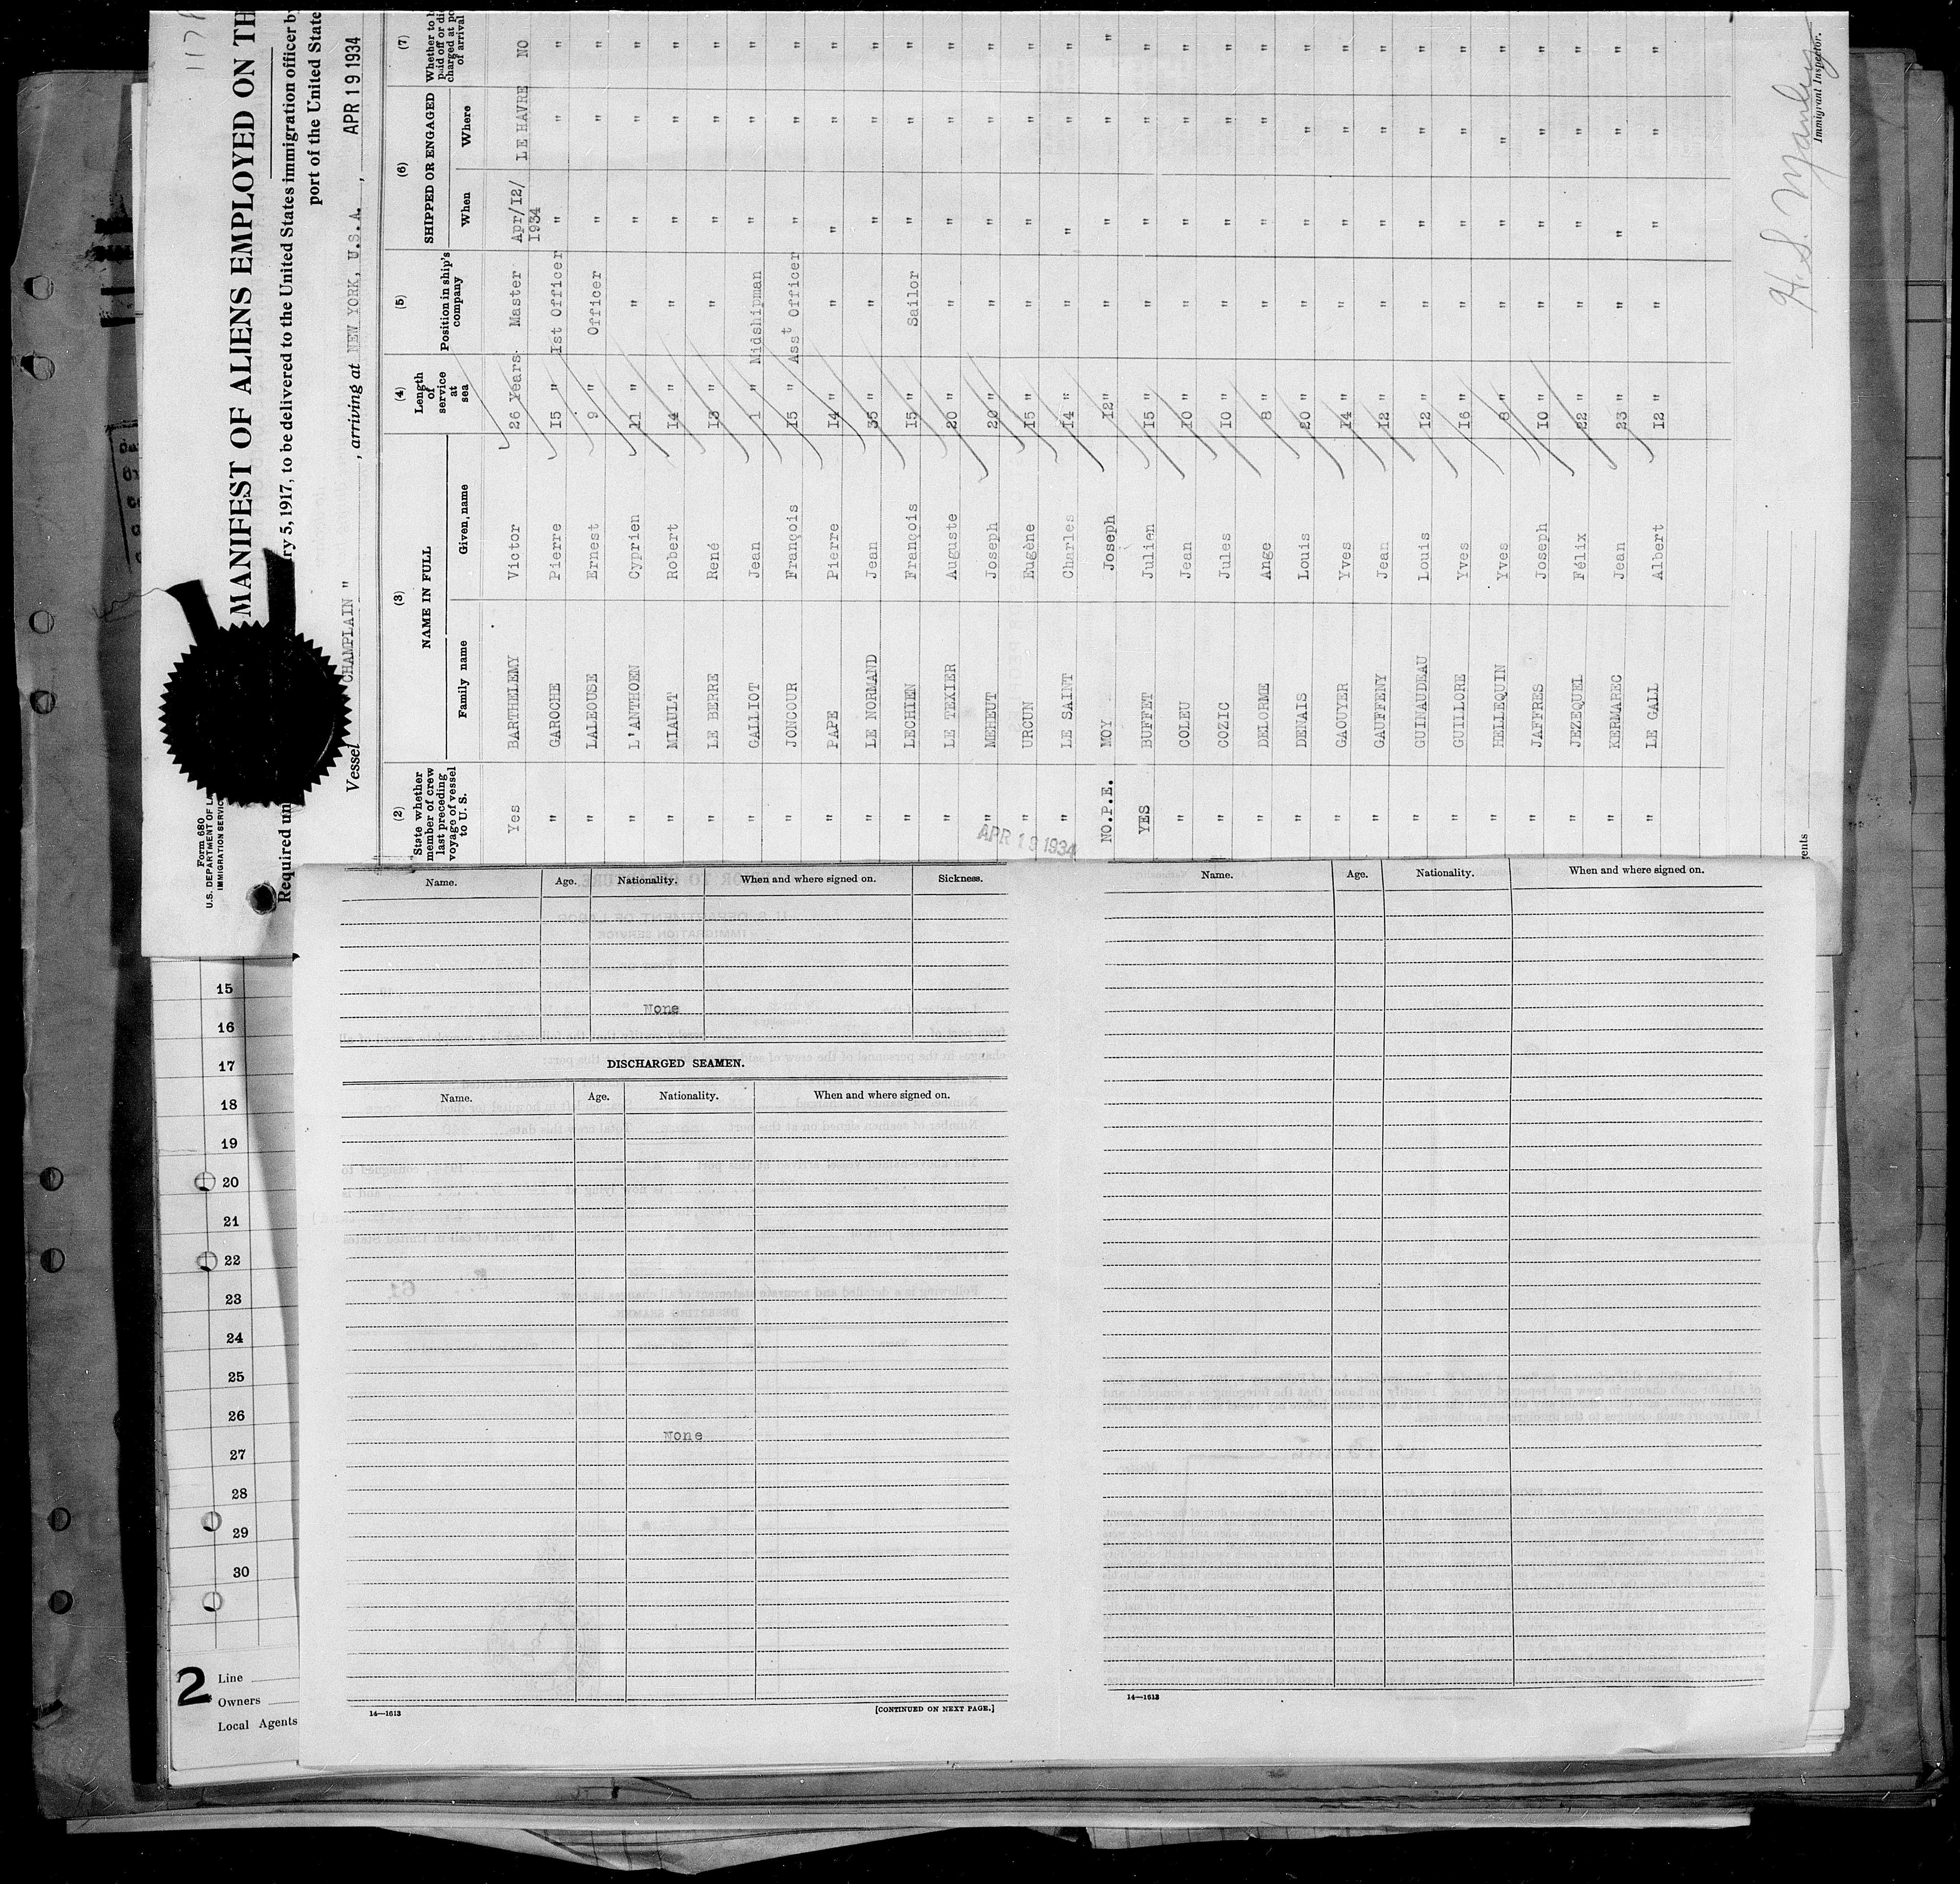 1178
MANIFEST OF ALIENS EMPLOYED ON TH
ry 5, 1917, to be delivered to the United States immigration officer by
port of the United State
Form 680
U.S. DEPARTMENT OF LA
IMMIGRATION SERVIC
Required un
Vessel " CHAMPLAIN " , arriving at NEW YORK, U.S.A. , APR 19 1934
(2) (3) (4) (5) (6) (7)
State whether member of crew last preceding voyage of vessel to U. S. NAME IN FULL Family name Given name Length of service at sea Position in ship's company SHIPPED OR ENGAGED When Where Whether to b paid off or dis charged at po of arrival
Yes BARTHELEMY Victor 26 Years. Master Apr/12/ 1934 LE HAVRE NO
" GAROCHE Pierre 15 " 1st Officer " " "
" LALEOUSE Ernest 9 " Officer " " "
" L'ANTHOEN Cyprien 11 " " " " "
" MIAULT Robert 14 " " " " "
" LE BERRE René 13 " " " " "
" GALLIOT Jean 1 " Midshipman " " "
" JONCOUR François 15 " Asst Officer " " "
" PAPE Pierre 14 " " " " "
" LE NORMAND Jean 35 " " " " "
" LECHIEN François 15 " Sailor " " "
" LE TEXIER Auguste 20 " " " " "
" MEHEUT Joseph 20 " " " " "
" URCUN Eugène 15 " " " " "
" LE SAINT Charles 14 " " " " "
NO.P.E. MOY Joseph 12" " " " "
YES BUFFET Julien 15 " " " " "
" COLEU Jean 10 " " " " "
" COZIC Jules 10 " " " " "
" DELORME Ange 8 " " " " "
" DENAIS Louis 20 " " " " "
" GAOUYER Yves 14 " " " " "
" GAUFFENY Jean 12 " " " " "
" GUINAUDEAU Louis 12 " " " " "
" GUILLORE Yves 16 " " " " "
" HELLEQUIN Yves 8 " " " " "
" JAFFRES Joseph 10 " " " " "
" JEZEQUEL Félix 22 " " " " "
" KERMAREC Jean 23 " " " " "
" LE GALL Albert 12 " " " " "
APR 19 1934
H. S. Manley
Immigrant Inspector.
ents
Name. Age. Nationality. When and where signed on. Sickness.
None
DISCHARGED SEAMEN.
Name. Age. Nationality. When and where signed on.
None
14—1613 [CONTINUED ON NEXT PAGE.]
Name. Age. Nationality. When and where signed on.
14—1613
15
16
17
18
19
20
21
22
23
24
25
26
27
28
29
30
2
Line
Owners
Local Agents